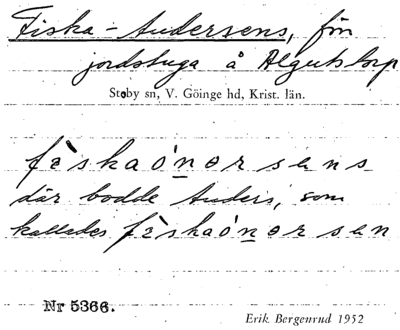 Fiska-Andersens, fön
jordstuga å Algutstorp
Stoby sn, V. Göinge hd, Krist. län.
fìskaónərsens
där bodde Anders, som
kallades fìskaónərsen
Nr 5366.
Erik Bergenrud 1952